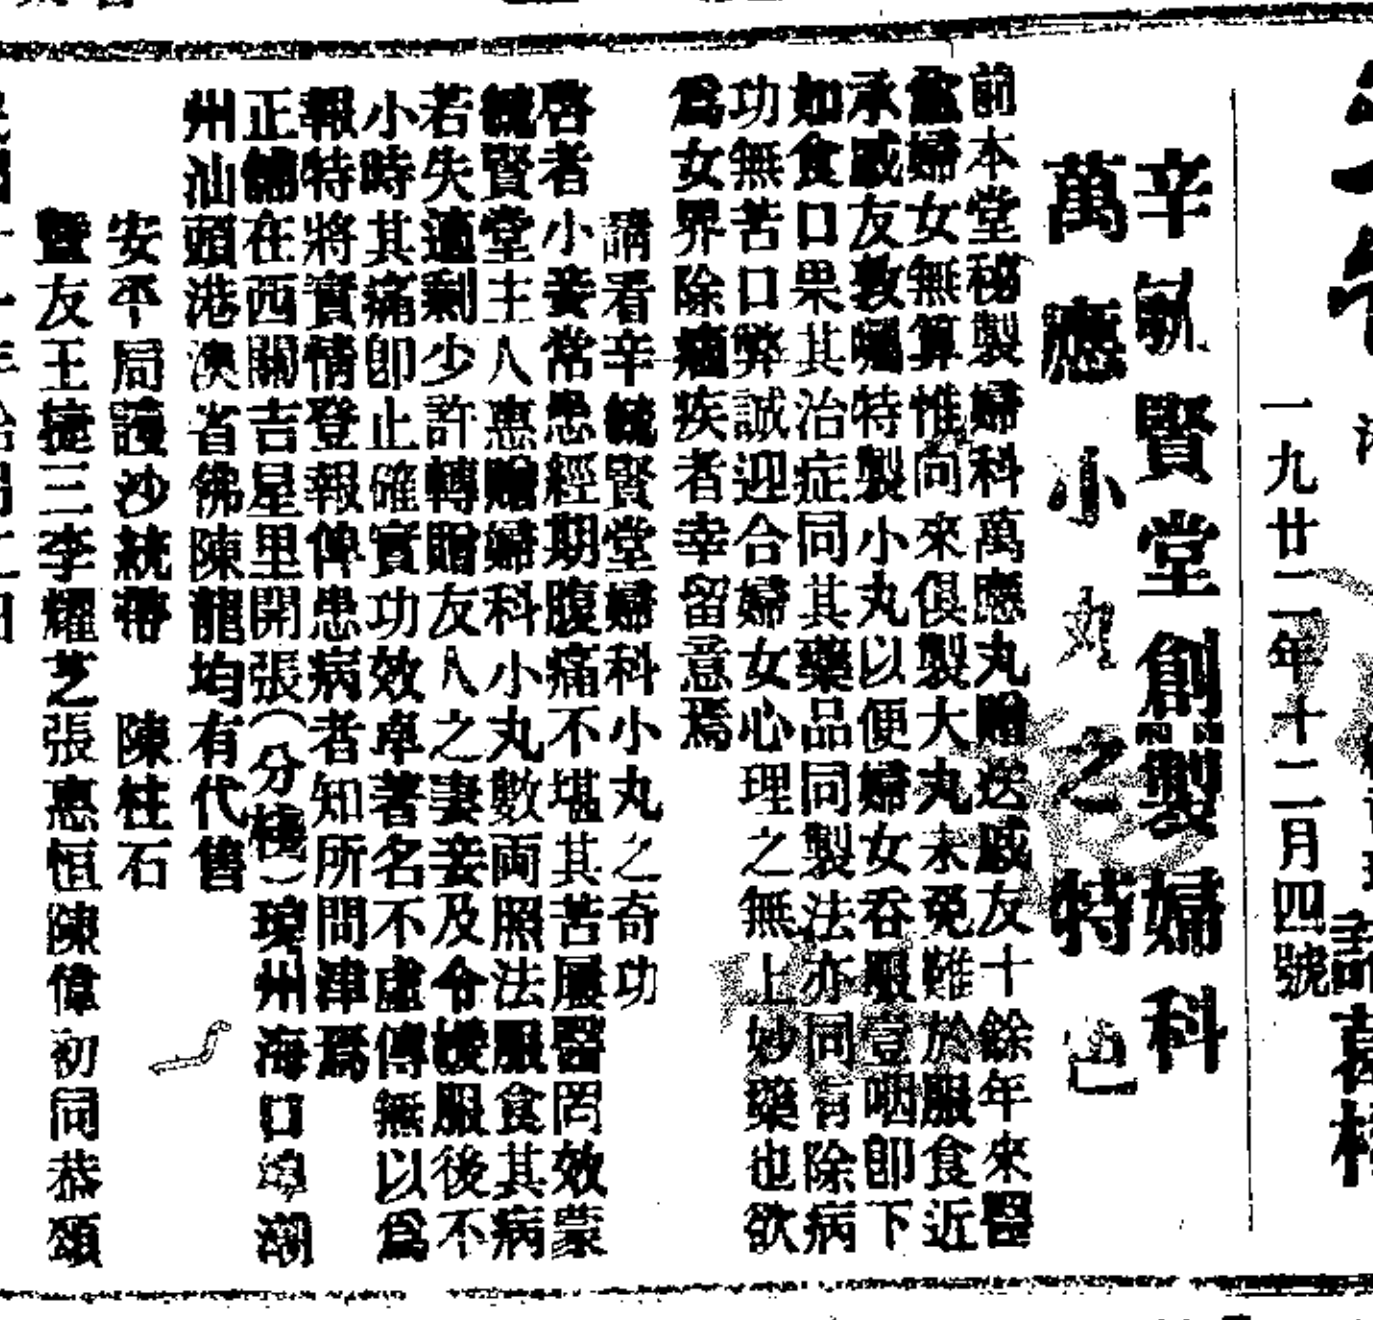 一九廿二年十二月四號
辛毓賢堂創製婦科
萬應小丸之特色
前本堂秘製婦科萬應丸贈送戚友十餘年來醫
愈婦女無算惟向來俱製大丸未免難於服食近
承戚友敦囑特製小丸以便婦女吞服壹咽卽下
如食口果其治症同其藥品同製法亦同有除病
功無苦口弊誠迎合婦女心理之無上妙藥也欲
爲女界除痼疾者幸留意焉
請看辛毓賢堂婦科小丸之奇功
啓者小妾常患經期腹痛不堪其苦屢醫罔效蒙
毓賢堂主人惠贈婦科小丸數兩照法服食其病
若失適剩少許轉贈友人之妻妾及令嬡服後不
小時其痛卽止確實功效卓著名不虛傳無以爲
報特將實情登報俾患病者知所問津焉
正舖在西關吉星里開張(分棧)瓊州海口 潮
州汕頭港澳省佛陳龍均有代售
安平局護沙統帶 陳柱石
暨友王捷三李耀芝張惠恒陳偉初同恭頌